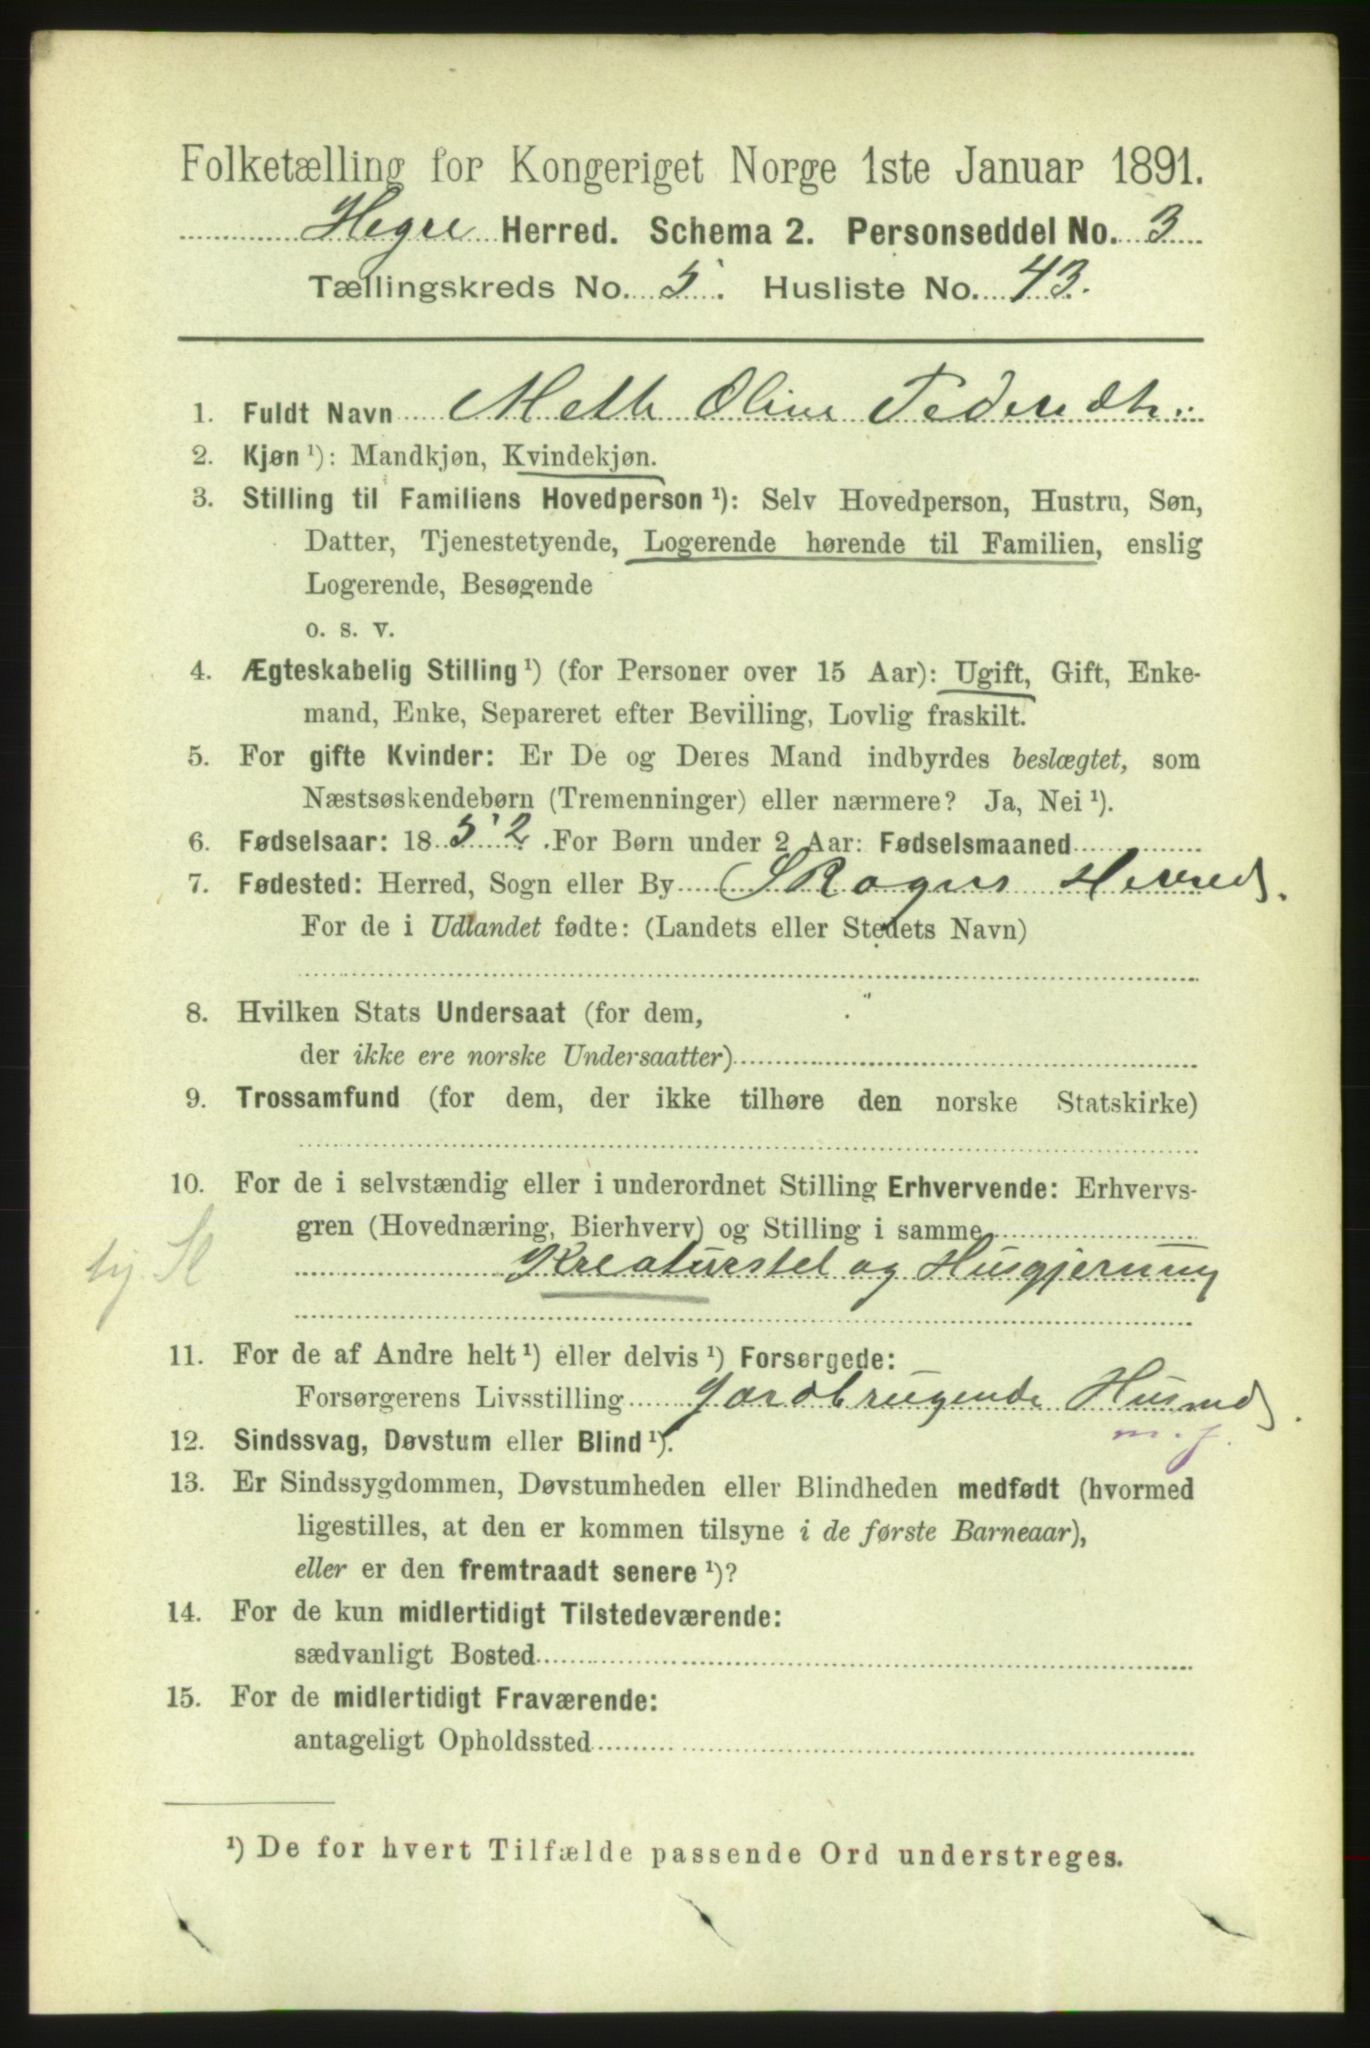 Folketælling for Kongeriget Norge 1ste Januar 1891.
Hegre Herred. Schema 2. Personseddel No. 3
Tællingskreds No. 5. Husliste No. 43.
1. Fuldt Navn Meth Oline Pedersdtr.
2. Kjøn ¹): Mandkjøn, Kvindekjøn.
3. Stilling til Familiens Hovedperson ¹): Selv Hovedperson, Hustru, Søn,
Datter, Tjenestetyende, Logerende hørende til Familien, enslig
Logerende, Besøgende
o. s. v.
4. Ægteskabelig Stilling ¹) (for Personer over 15 Aar): Ugift, Gift, Enke-
mand, Enke, Separeret efter Bevilling, Lovlig fraskilt.
5. For gifte Kvinder: Er De og Deres Mand indbyrdes beslægtet, som
Næstsøskendebørn (Tremenninger) eller nærmere? Ja, Nei ¹).
6. Fødselsaar: 1852. For Børn under 2 Aar: Fødselsmaaned
7. Fødested: Herred, Sogn eller By Skogns Herred.
For de i Udlandet fødte: (Landets eller Stedets Navn)
8. Hvilken Stats Undersaat (for dem,
der ikke ere norske Undersaatter)
9. Trossamfund (for dem, der ikke tilhøre den norske Statskirke)
10. For de i selvstændig eller i underordnet Stilling Erhvervende: Erhvervs-
gren (Hovednæring, Bierhverv) og Stilling i samme
Kreaturstel og Husgjerning
11. For de af Andre helt ¹) eller delvis ¹) Forsørgede:
Forsørgerens Livsstilling Jordbrugende Husmd.
m. j.
12. Sindssvag, Døvstum eller Blind ¹).
13. Er Sindssygdommen, Døvstumheden eller Blindheden medfødt (hvormed
ligestilles, at den er kommen tilsyne i de første Barneaar),
eller er den fremtraadt senere ¹)?
14. For de kun midlertidigt Tilstedeværende:
sædvanligt Bosted
15. For de midlertidigt Fraværende:
antageligt Opholdssted
¹) De for hvert Tilfælde passende Ord understreges.